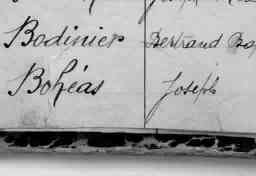 Bodinier Bertrand
Bohéas Joseph